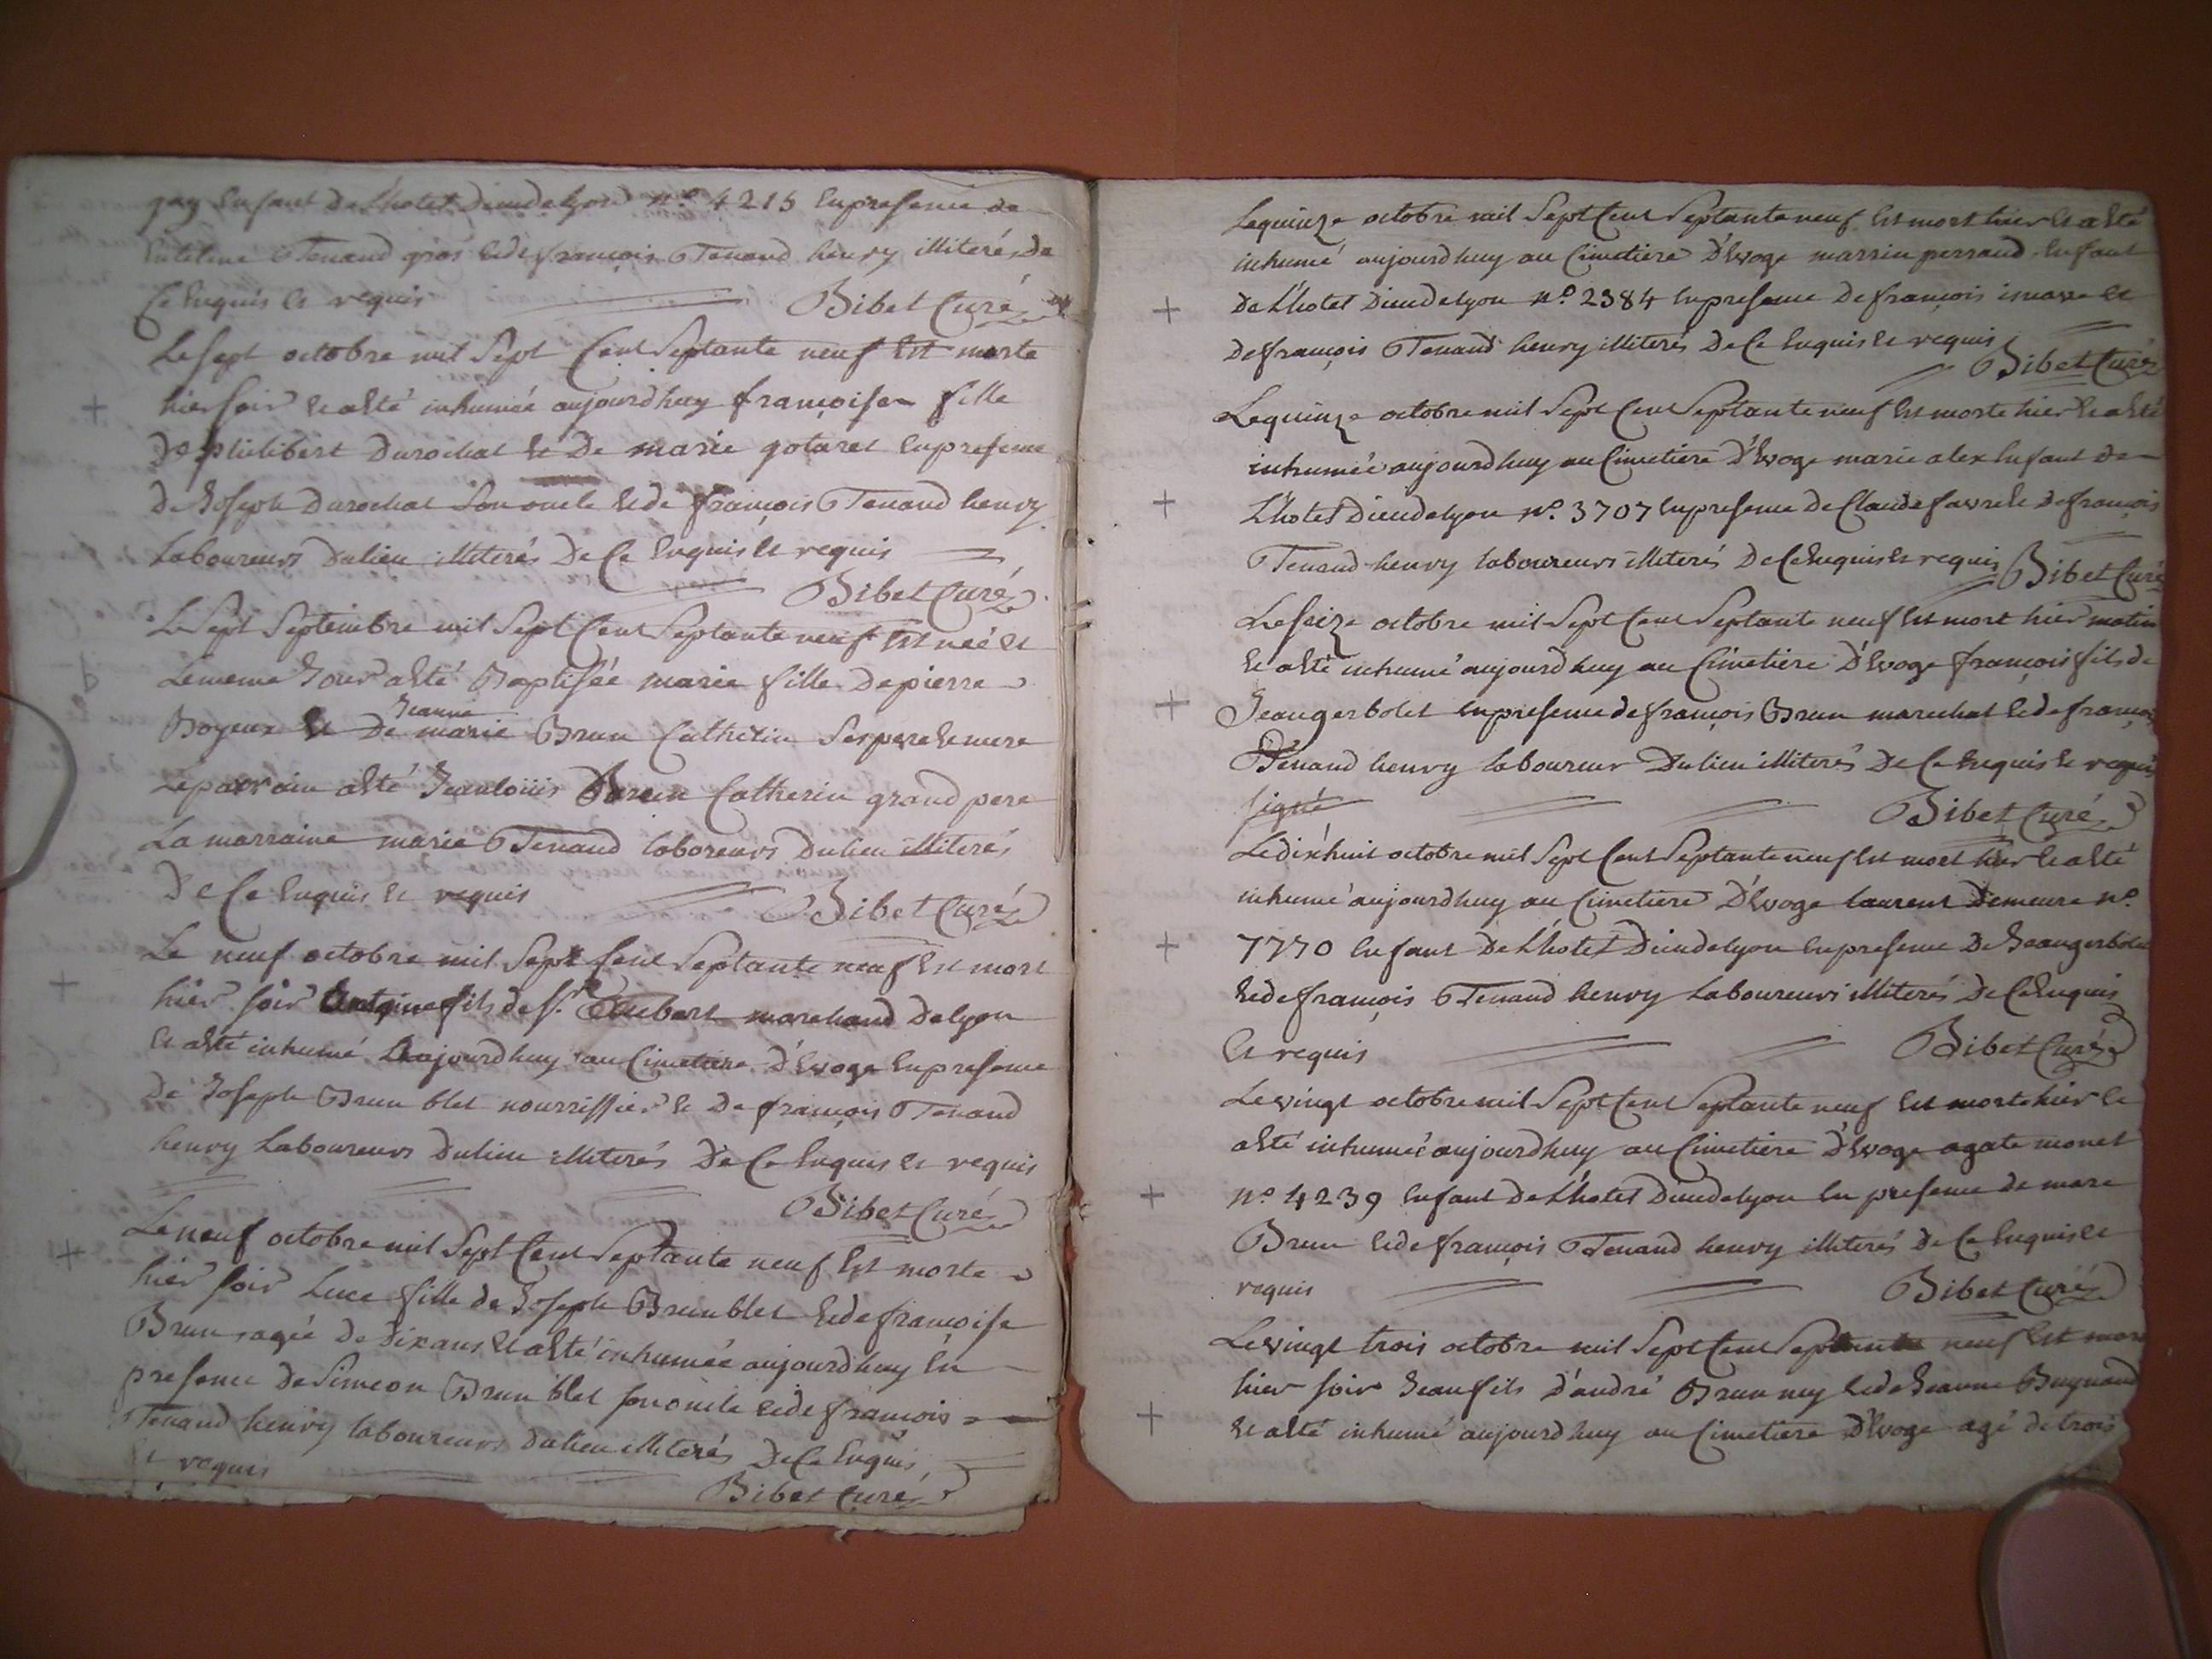 gay Enfant De L'hotel Dieu de lyon n.º 4215 En presence de
Tenand gros et de françois Tenand henry illiterés de
Ce Enquis et requis Bibet Curé
Le sept octobre mil Sept Cent Septante neuf Est morte
hier soir et a eté inhumée aujourdhuy françoise fille
De philibert Durochat et De marie gotaret En presence
De Joseph Durochat Son oncle et de françois Tenand henry
Laboureurs Du lieu illiterés De Ce Enquis et requis
Bibet Curé
Le Sept Septembre mil Sept Cent Septante neuf Est neé et
Le meme Jour a eté Baptisée marie fille De pierre
Jeanne
Boyeux et De marie Brun Catherin Ses pere et mere
Le parrain a eté Jean louis Brun Catherin grand pere
La marraine marie Tenand laboreurs Du lieu illiterés
De Ce Enquis et requis Bibet Curé
Le neuf octobre mil Sept Cent Septante neuf Est mort
hier soir Antoine fils de S.r marchand De lyon
et a eté inhumé aujourdhuy au Cimetiere D'Evoge En presence
De Joseph Brun blet nourrissier et De françois Tenand
henry Laboureurs Du lieu illiterés De Ce Enquis et requis
Bibet Curé
Le neuf octobre mil Sept Cent Septante neuf Est morte
hier soir Luce fille de Joseph Brun blet et de françoise
Brun agée De dix ans et a eté inhumée aujourdhuy En
presence De Simeon Brun blet son oncle et de françois
Tenand henry laboureurs Du lieu illiterés De Ce Enquis
et requis
Bibet Curé
Le quinze octobre mil Sept Cent Septante neuf Est mort hier et a eté
inhumé aujourdhuy au Cimetiere D'Evoge marrin perraud Enfant
De L'hotel Dieu de lyon n.º 2384 En presence De françois et
De françois Tenand henry illiterés De Ce Enquis et requis
Bibet Curé
Le quinze octobre mil Sept Cent Septante neuf Est morte hier et a eté
inhumée aujourdhuy au Cimetiere D'Evoge marie alex Enfant De
L'hotel Dieu de lyon n.º 3707 En presence De Claude favre et De françois
Tenand henry laboureurs illiterés De Ce Enquis et requis Bibet Curé
Le seize octobre mil Sept Cent Septante neuf Est mort hier matin
et a eté inhumé aujourdhuy au Cimetiere D'Evoge françois fils de
Jean gerbolet En presence de françois Brun marechal et de françois
Tenand henry laboureur Du lieu illiterés De Ce Enquis et requis
signé Bibet Curé
Le dixhuit octobre mil Sept Cent Septante neuf Est mort hier et a eté
inhumé aujourdhuy au Cimetiere D'Evoge laurent Demeure n.º
7770 Enfant De L'hotel Dieu de lyon En presence De Jean gerbolet
et de françois Tenand henry Laboureurs illiterés De Ce Enquis
et requis Bibet Curé
Le vingt octobre mil Sept Cent Septante neuf Est morte hier et
a eté inhumée aujourdhuy au Cimetiere D'Evoge agate monet
n.º 4239 Enfant De L'hotel Dieu de lyon En presence de marc
Brun et de françois Tenand henry illiterés De Ce Enquis et
requis Bibet Curé
Le vingt trois octobre mil Sept Cent Septante neuf Est mort
hier soir Jean fils D'andré Brun ney et de Jeanne Buynand
et a eté inhumé aujourdhuy au Cimetiere D'Evoge agé de trois